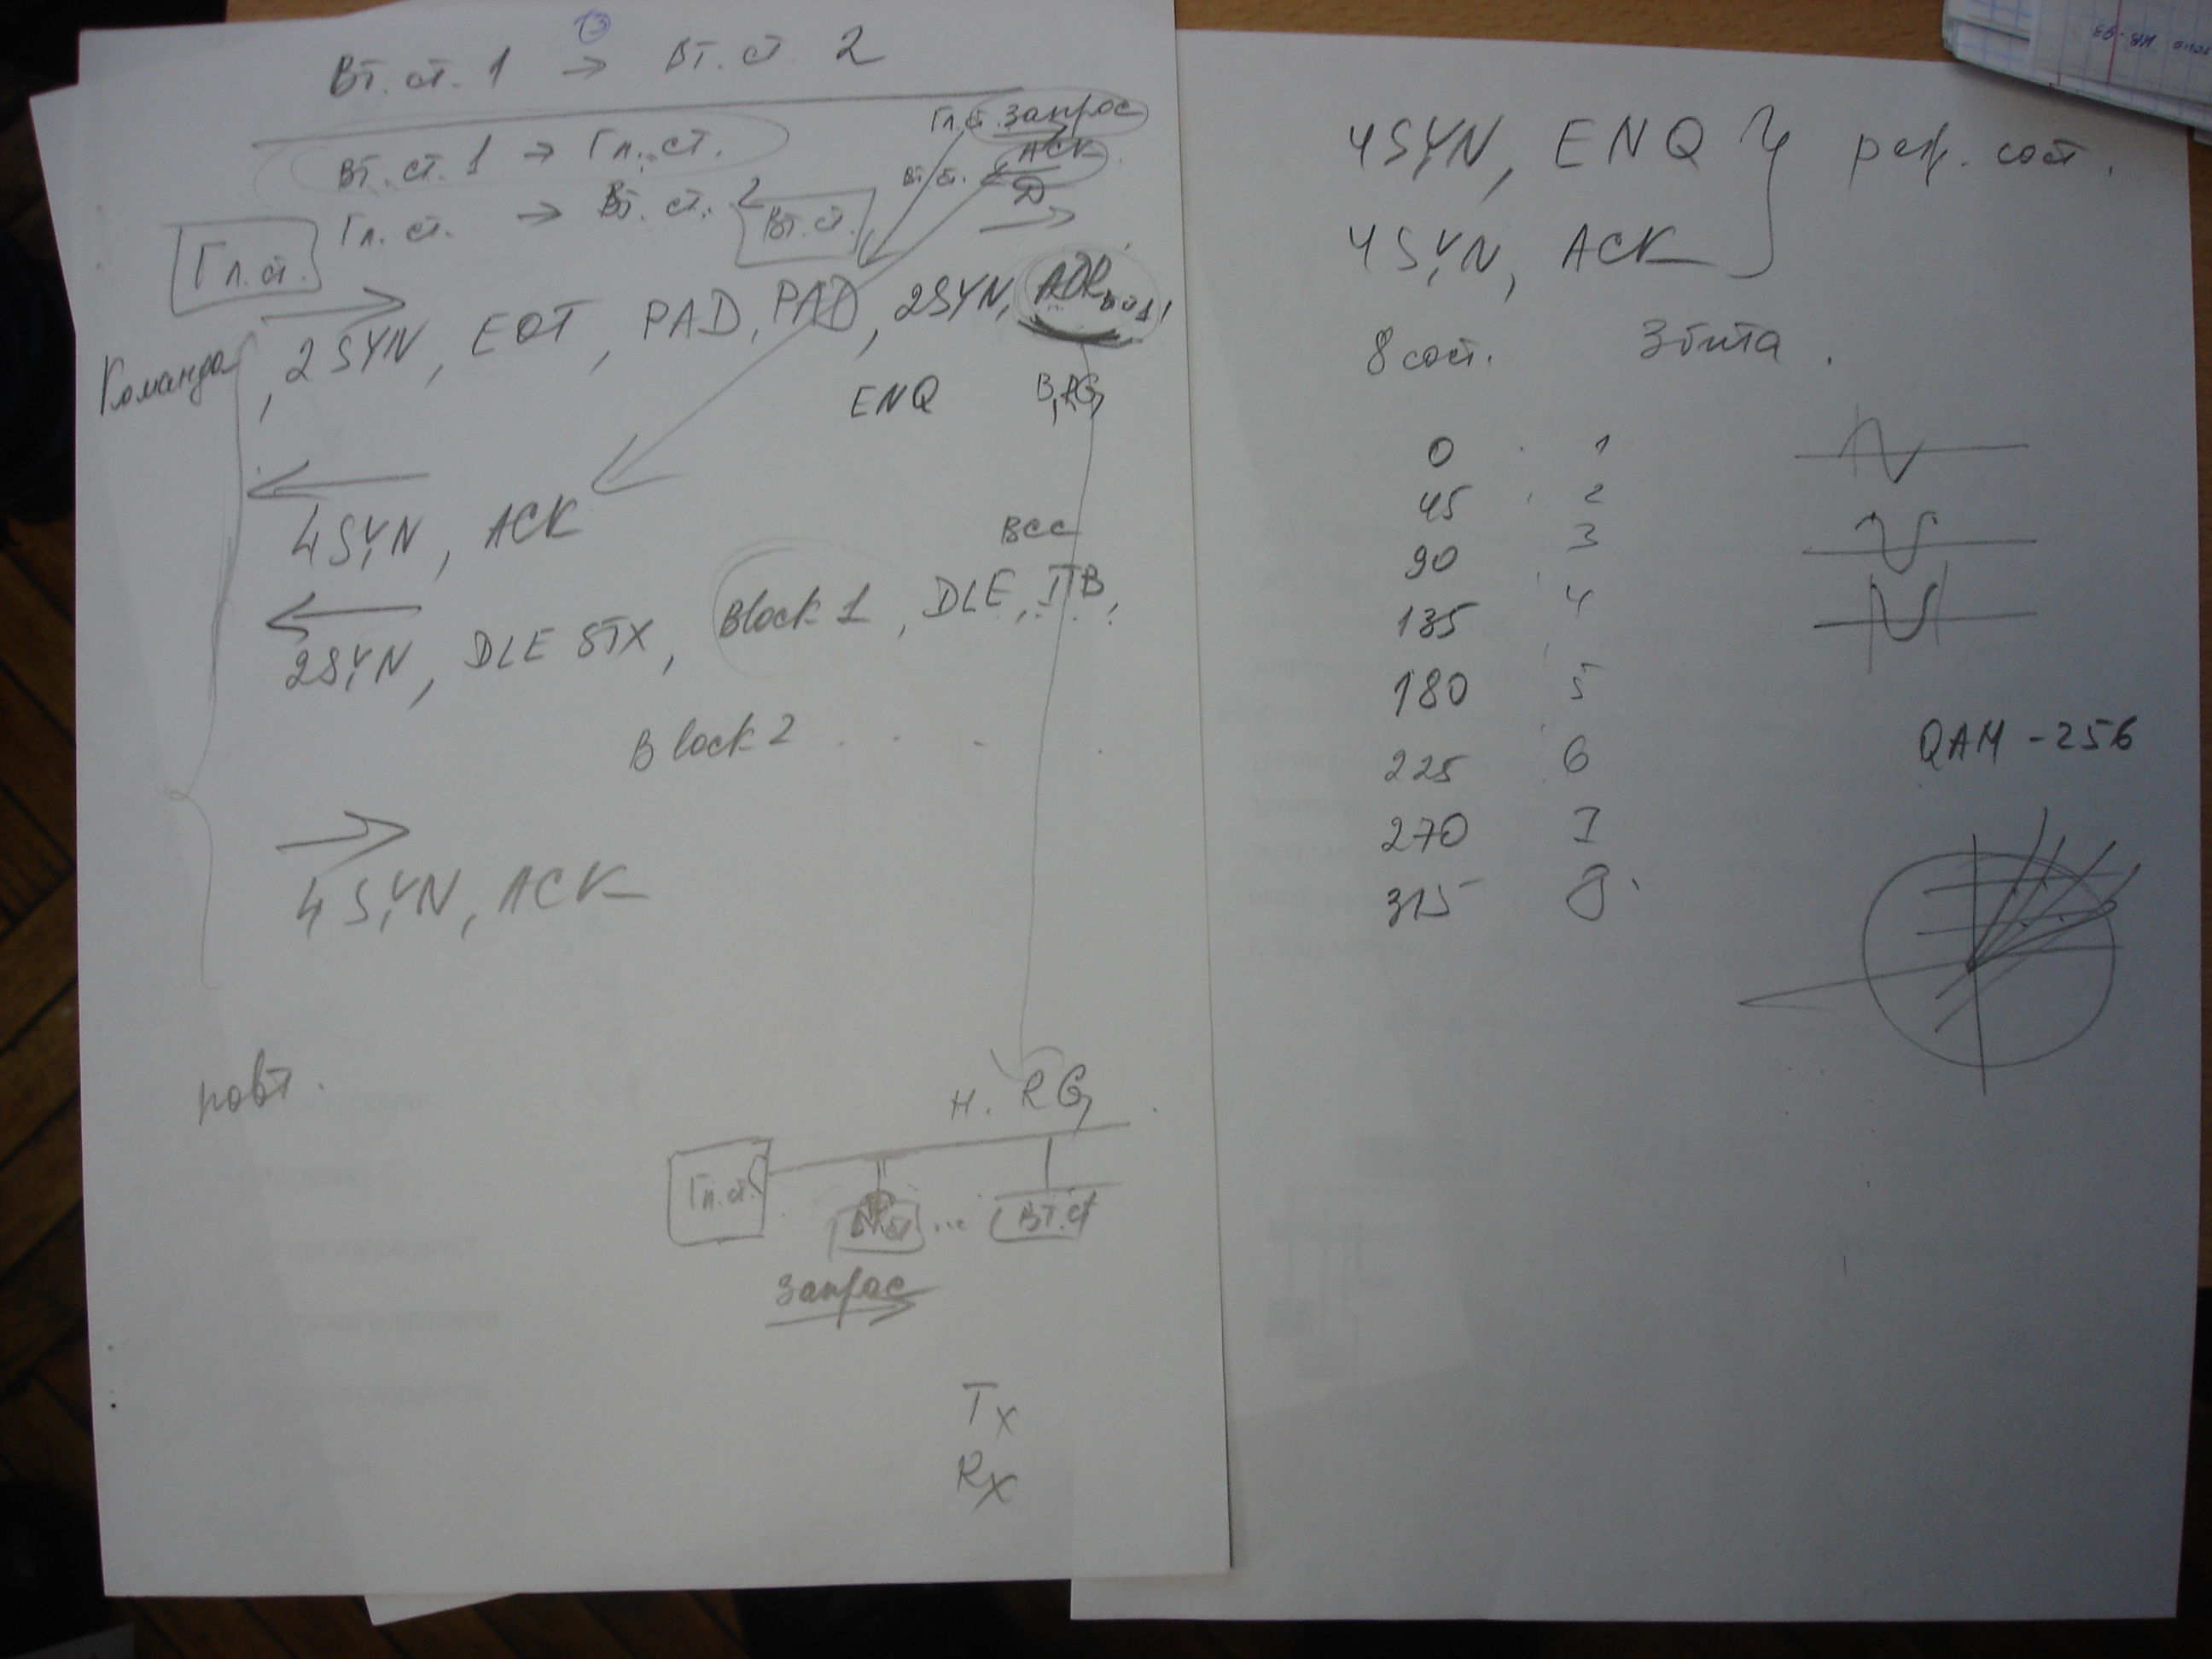 13
Вт. ст. 1 → Вт. ст. 2
Вт. ст. 1 → Гл. ст.
Гл. ст. запрос
Вт. ст. ACK
Д
Гл. ст. → Вт. ст. 2
Вт. ст.
Гл. ст.
Команда, 2 SYN, EOT, PAD, PAD, 2SYN, ADR вт.ст.1,
ENQ
4 SYN, ACK
BCC
2SYN, DLE STX, Block 1, DLE, ITB,
Block 2 . . . .
4 SYN, ACK
повт.
н. RG
Гл. ст.
Вт. ст ... Вт. ст
Запрос
Tx
Rx
4 SYN, ENQ
4 SYN, ACK
8 сост. 3 бита.
0 1
45 2
90 3
135 4
180 5
225 6
270 7
315 8
QAM - 256